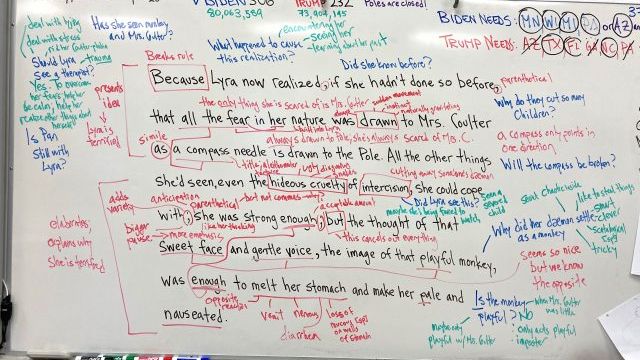 BIDEN 306
TRUMP 232
80,063,589
73,904,195
Polls are closed!
BIDEN NEEDS: MN WI MI PA or AZ an
TRUMP NEEDS: AZ TX FL GA NC PA
deal with trying
deal with stress
trauma
Should Lyra
see a therapist?
Yes. to overcome
her fears, help her
be calm, help her
realize other things about
herself
Is Pan
Still with
Lyra?
Has she seen monkey
and Mrs. Coulter?
What happened to cause
this realization?
encountering her
seeing her
learning about her past
Did she know before?
Breaks rule
presents
idea
Lyra is
terrified
Because Lyra now realized, if she hadn't done so before,
parenthetical
the only thing she is scared of is Mrs. Coulter
sudden movement
instinct
naturally gravitating
that all the fear in her nature was drawn to Mrs Coulter
built into Lyra
Why do they cut so many
Children?
simile
always drawn to Pole, she's always scared of Mrs. C.
as a compass needle is drawn to the Pole. All the other things
a compass only points in
one direction
title, alethiometer
ugly disgusting
cutting away someone's daemon
Will the compass be broken?
She'd seen, even the hideous cruelty of intercision, she could cope
adds
variety
anticipation
parenthetical
like her thinking
but not commas- why?
acceptable amount
Did Lyra see this?
maybe she's being forced to watch
seen a
severed
child
with; she was strong enough; but the thought of that
bigger
pause
more emphasis
this cancels out everything
elaborates,
explains why
she is terrified
Sweet face and gentle voice, the image of that playful monkey,
Why did her daemon settle
as a monkey
smart
like to steal things
clever
tricky
seems so nice
but we know
the opposite
was enough to melt her stomach and make her pale and
opposite
nauseated.
vomit
nervous
diarrhea
loss of
on walls
of stomach
Is the monkey
playful?
when Mrs. Coulter
was little
No
maybe only
playful w/ Mrs. Coulter
only acts playful
imposter